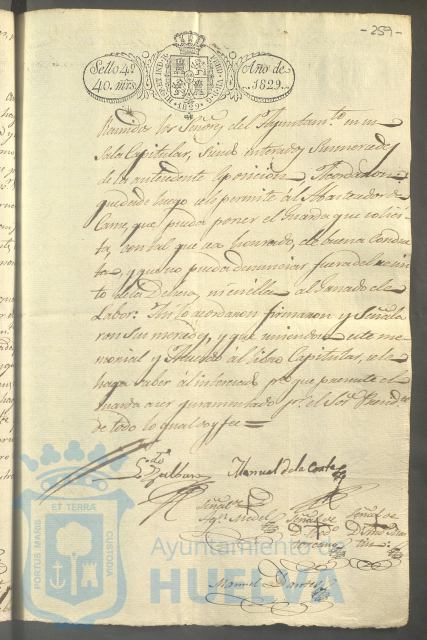 -259-
Sello 4º
40. mrs.
Año de
1829.
HISPAN. ET IND. R.
FERD. VII D. G.
1829
Reunidos los Señores del Ayuntamto en su
Sala Capitular, siendo enterados sus mercedes
de la antecedente esposicion Acordaron:
que desde luego se le permite al Abastecedor de
Carne, que pueda poner el Guarda que solici-
ta, con tal que sea honrado, de buena conduc-
ta, y que no pueda denunciar fuera del recin-
to de la Dehesa, ni en ella al Ganado de
Labor: Asi lo acordaron firmaron y Señala-
ron sus mercedes, y que uniendose este me-
morial y Acuerdo al libro Capitular, se le
haga saber al interesado pa que presente el
Guarda a ser juramentado pr. el Sor. Presidte
de todo lo qual doy fee =
Manuel de la Corte
Señal de
Señal de
Señal de
Manuel
Ayuntamiento de
HUELVA
PORTUS MARIS
ET TERRÆ
CUSTODIA